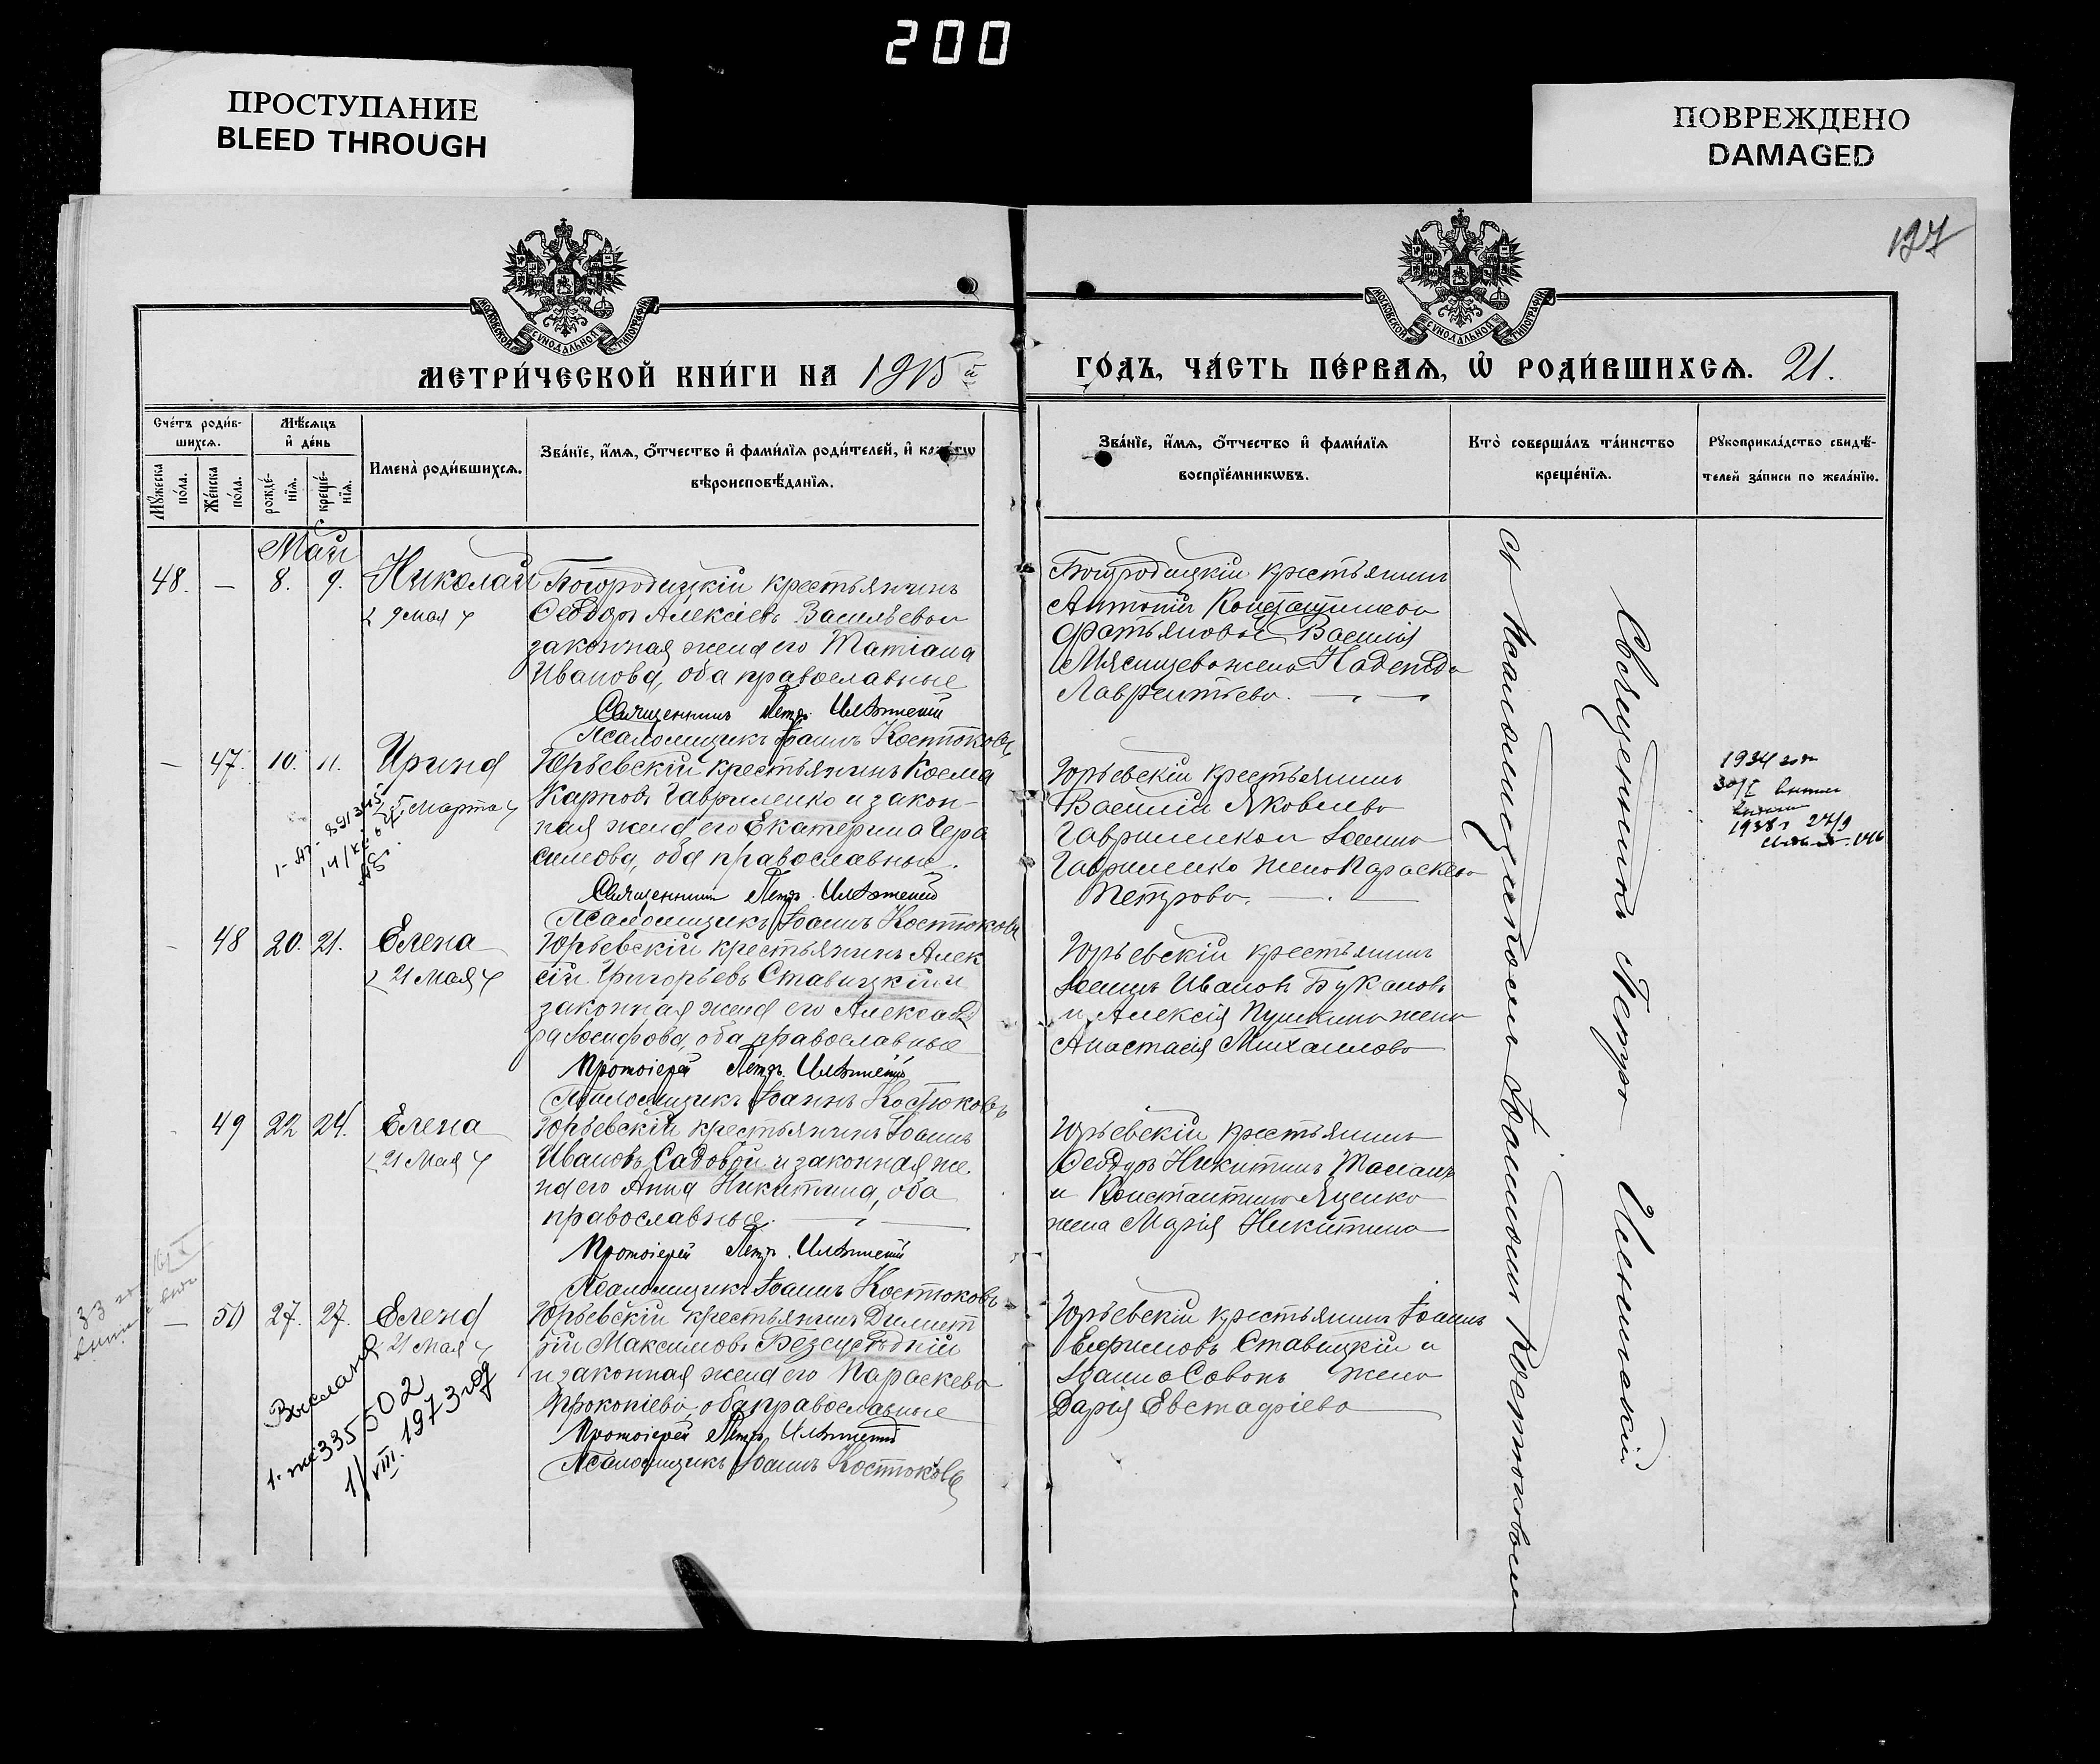 200
ПРОСТУПАНИЕ
BLEED THROUGH
ПОВРЕЖДЕНО
DAMAGED
127
МОСКОВСКОЙ СѴНОДАЛЬНОЙ ТИПОГРАФІИ
МОСКОВСКОЙ СѴНОДАЛЬНОЙ ТИПОГРАФІИ
МЕТРИ́ЧЕСКОЙ КНИ́ГИ НА 1915й
ГО́ДЪ, ЧА́СТЬ ПЕ́РВАѦ, Ѡ҆ РОДИ́ВШИХСѦ. 21.
Сче́тъ роди́в-
шихсѧ.
Мꙋ́жеска по́ла.
Же́нска по́ла.
Мѣ́сѧцъ
и҆ де́нь
рожде́-
нїѧ.
креще́-
нїѧ.
Имена̀ роди́вшихсѧ.
Зва́нїе, и҆́мѧ, ѻ҆́тчество и҆ фами́лїѧ роди́телей, и҆ како́гѡ
вѣроисповѣ́данїѧ.
Зва́нїе, и҆́мѧ, ѻ҆́тчество и҆ фами́лїѧ
воспрїе́мникѡвъ.
Кто̀ соверша́лъ та́инство
креще́нїѧ.
Рꙋкоприкла́дство свидѣ́-
телей за́писи по жела́нїю.
Май
48. — 8. 9. Николай
9 мая
Богородицкій крестьянинъ
Ѳеодоръ Алексіевъ Васильевъ и
законная жена его Татіана
Иванова, оба православные
Священникъ Петръ
Псаломщикъ Іоаннъ Костюковъ
Богородицкій крестьянинъ
Антоній Константиновъ
Фатьяновъ и Василія
Мясищева жена Надежда
Лаврентьева.
— 47. 10. 11. Ирина
5 Марта
Юрьевскій крестьянинъ Косма
Карповъ Гавриленко и закон-
ная жена его Екатерина Гера
симова, оба православные.
Священникъ Петръ
Псаломщикъ Іоаннъ Костюковъ
Юрьевскій крестьянинъ
Василій Яковлевъ
Гавриленко и Іоанна
Гавриленко жена Параскева
Петрова.
1934 год
1938 г 27/9
48 20. 21. Елена
21 Мая
Юрьевскій крестьянинъ Алек
сій Григорьевъ Ставицкій и
законная жена его Александ
ра Іосифова, оба православные
Протоіерей Петръ
Псаломщикъ Іоаннъ Костюковъ
Юрьевскій крестьянинъ
Іоаннъ Ивановъ Букановъ
и Алексія Пушкина жена
Анастасія Михаилова
49 22 24. Елена
21 Мая
Юрьевскій крестьянинъ Іоаннъ
Ивановъ Садовой и законная же-
на его Анна Никитина, оба
православные.
Протоіерей Петръ
Псаломщикъ Іоаннъ Костюковъ
Юрьевскій крестьянинъ
Ѳеодоръ Никитинъ
и Константина Яценко
жена Марія Никитина
— 50 27. 27. Елена
21 Мая
Юрьевскій крестьянинъ Димит
рій Максимовъ Безсчетній
и законная жена его Параскева
Прокопіева, оба православные
Протоіерей Петръ
Псаломщикъ Іоаннъ Костюковъ
Юрьевскій крестьянинъ Іоаннъ
Ефимовъ Ставицкій и
Іоанна жена
Дарія Евстафіева
Выслана
335502
1/VIII. 1973 год
Священникъ Петръ
съ псаломщикомъ Іоанномъ Костюковымъ